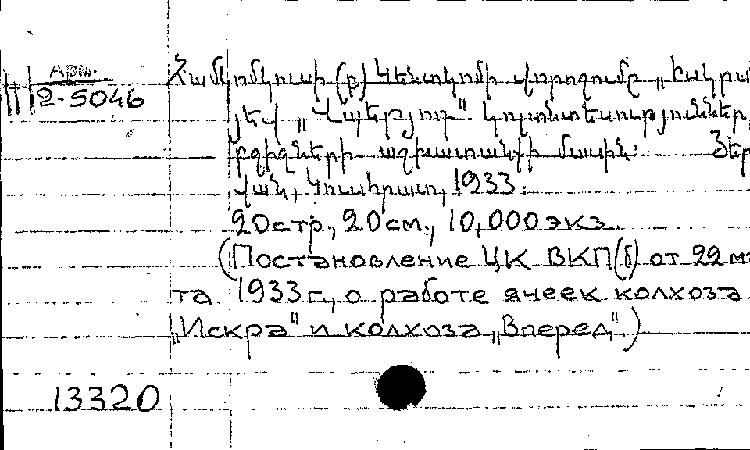 Арм.
2-5046
Համկոմկուսի (բ) Կենտկոմի վորոշումը „Իսկրա
յեվ „Վպերյոդ". կոլտնտեսությունների
բջիջների աշխատանքի մասին: Յեր
վան, Կուսհրատ, 1933.
20 стр., 20 см., 10,000 экз.
(Постановление ЦК ВКП(б) от 22 ма
та 1933 г., о работе ячеек колхоза
„Искра" и колхоза „Вперед".)
13320